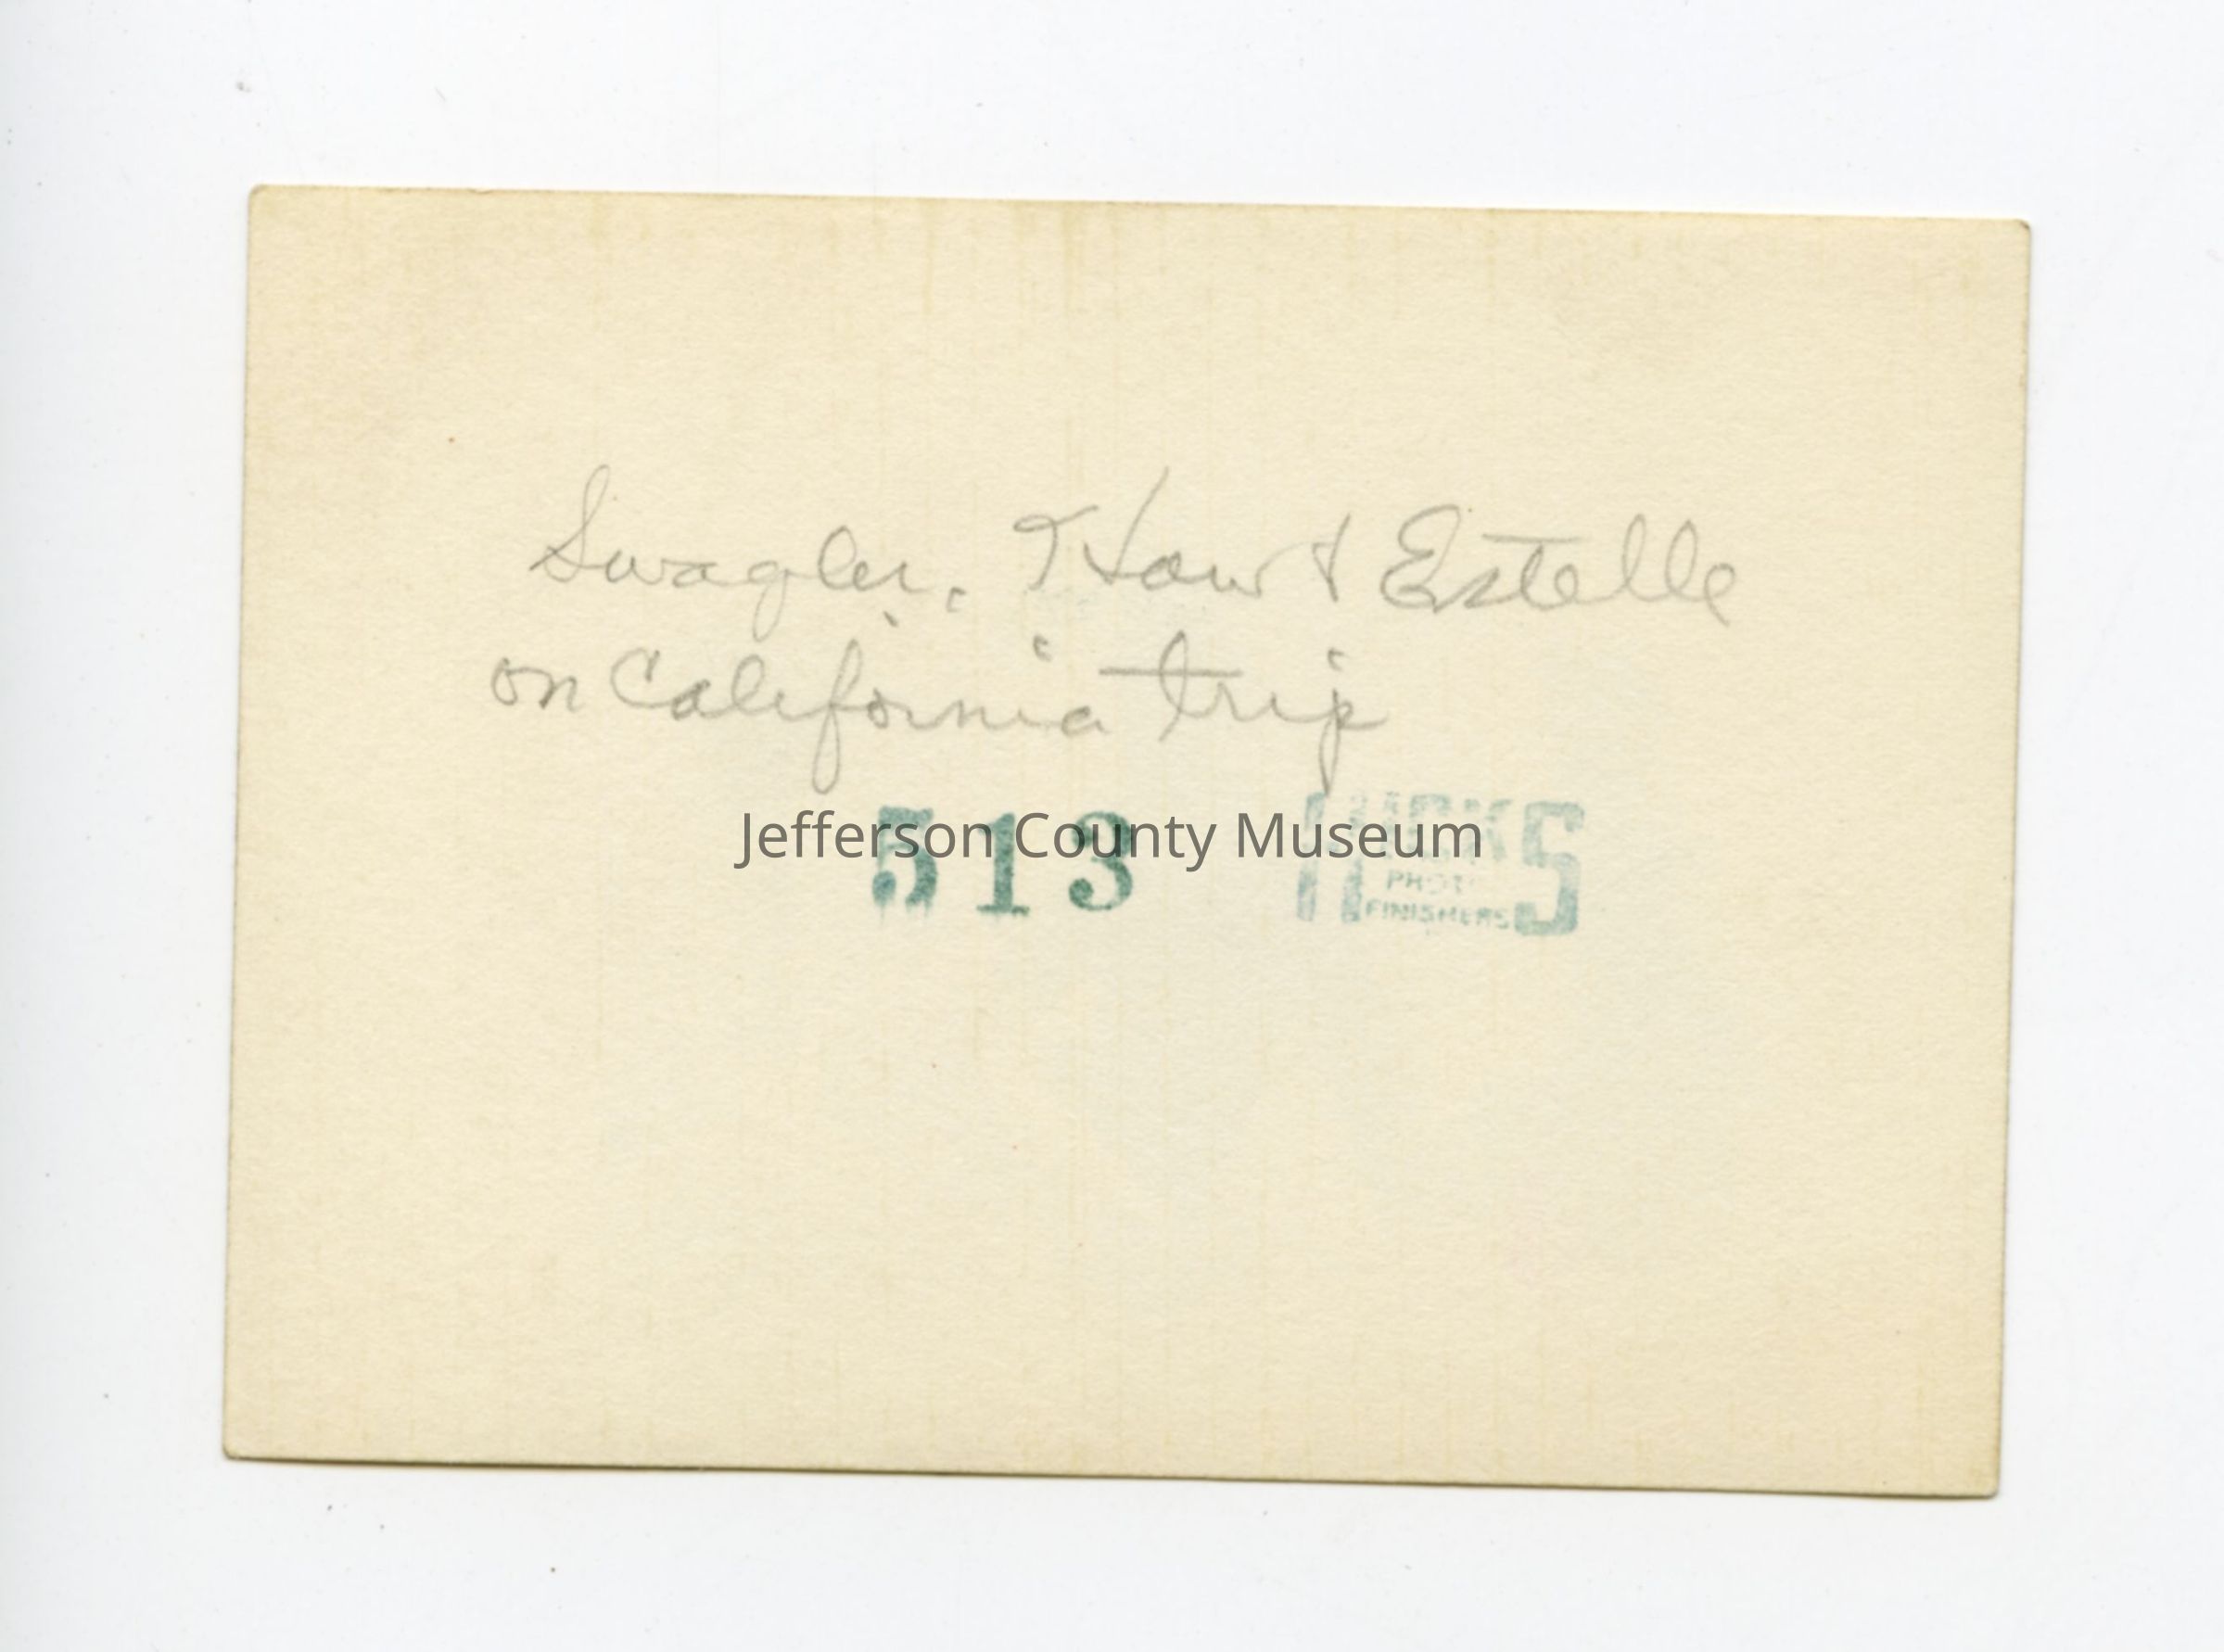 Swagler. How & Estelle
on California trip
Jefferson County Museum
513
HICKS
PHOTO
FINISHERS